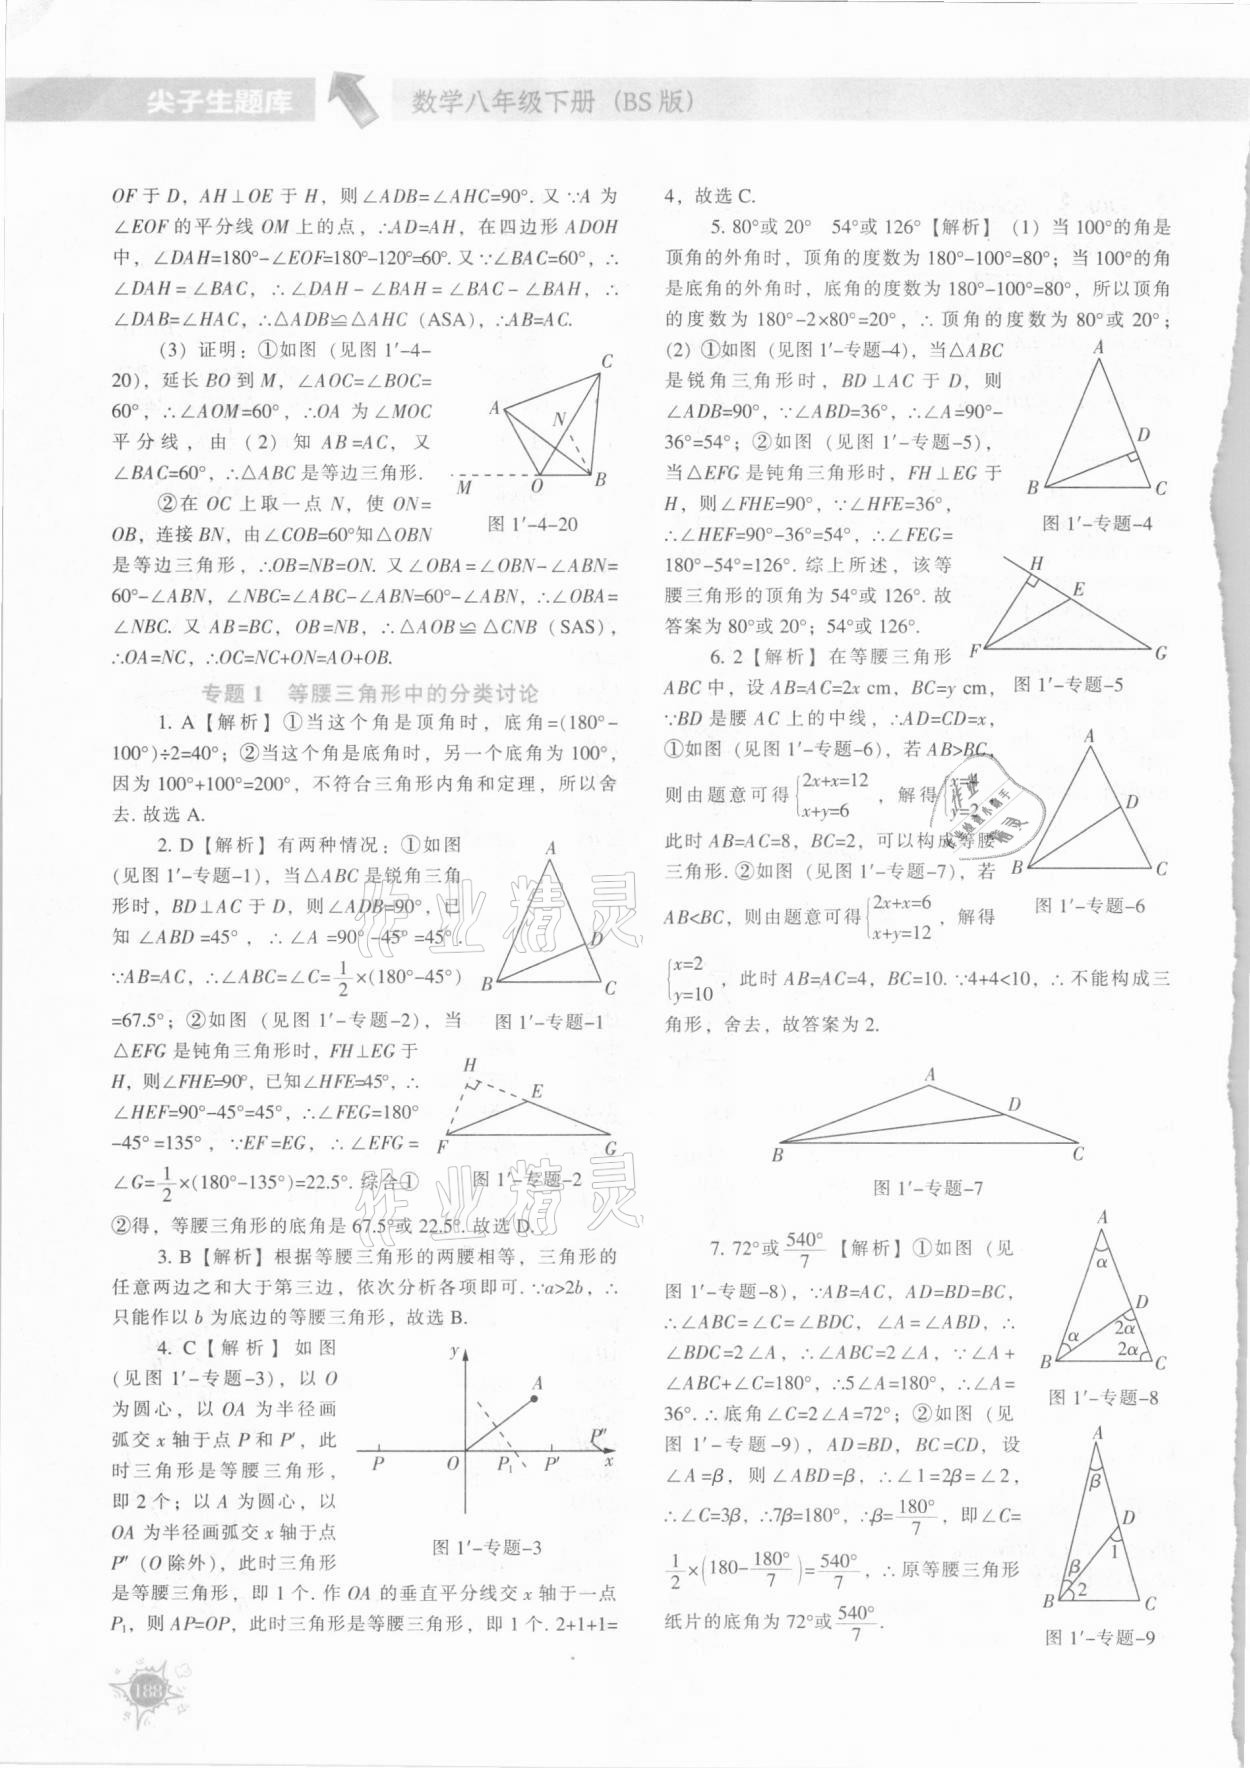 尖子生题库
数学八年级下册（BS版）
OF于D，AH⊥OE于H，则∠ADB=∠AHC=90°. 又∵A为
∠EOF的平分线OM上的点，∴AD=AH，在四边形ADOH
中，∠DAH=180°-∠EOF=180°-120°=60°. 又∵∠BAC=60°，∴
∠DAH=∠BAC，∴∠DAH-∠BAH=∠BAC-∠BAH，∴
∠DAB=∠HAC，∴△ADB≌△AHC（ASA），∴AB=AC.
(3) 证明：①如图（见图1′-4-
20），延长BO到M，∠AOC=∠BOC=
60°，∴∠AOM=60°，∴OA为∠MOC
平分线，由（2）知AB=AC，又
∠BAC=60°，∴△ABC是等边三角形.
②在OC上取一点N，使ON=
OB，连接BN，由∠COB=60°知△OBN
是等边三角形，∴OB=NB=ON. 又∠OBA=∠OBN-∠ABN=
60°-∠ABN，∠NBC=∠ABC-∠ABN=60°-∠ABN，∴∠OBA=
∠NBC. 又AB=BC，OB=NB，∴△AOB≌△CNB（SAS），
∴OA=NC，∴OC=NC+ON=AO+OB.
C
A
N
M
O
B
图1′-4-20
专题1 等腰三角形中的分类讨论
1. A【解析】①当这个角是顶角时，底角=(180°-
100°)÷2=40°；②当这个角是底角时，另一个底角为100°，
因为100°+100°=200°，不符合三角形内角和定理，所以舍
去. 故选A.
2. D【解析】有两种情况：①如图
(见图1′-专题-1)，当△ABC是锐角三角
形时，BD⊥AC于D，则∠ADB=90°，已
知∠ABD=45°，∴∠A=90°-45°=45°.
∵AB=AC，∴∠ABC=∠C=1/2×(180°-45°)
=67.5°；②如图（见图1′-专题-2），当
△EFG是钝角三角形时，FH⊥EG于
H，则∠FHE=90°，已知∠HFE=45°，∴
∠HEF=90°-45°=45°，∴∠FEG=180°
-45°=135°，∵EF=EG，∴∠EFG=
∠G=1/2×(180°-135°)=22.5°. 综合①
②得，等腰三角形的底角是67.5°或22.5°. 故选D.
A
D
B
C
图1′-专题-1
H
E
F
G
图1′-专题-2
3. B【解析】根据等腰三角形的两腰相等，三角形的
任意两边之和大于第三边，依次分析各项即可. ∵a>2b，∴
只能作以b为底边的等腰三角形，故选B.
4. C【解析】如图
(见图1′-专题-3)，以O
为圆心，以OA为半径画
弧交x轴于点P和P′，此
时三角形是等腰三角形，
即2个；以A为圆心，以
OA为半径画弧交x轴于点
P″（O除外），此时三角形
是等腰三角形，即1个. 作OA的垂直平分线交x轴于一点
P₁，则AP=OP，此时三角形是等腰三角形，即1个. 2+1+1=
y
A
P″
P
O
P₁
P′
x
图1′-专题-3
4，故选C.
5. 80°或20° 54°或126°【解析】(1) 当100°的角是
顶角的外角时，顶角的度数为180°-100°=80°；当100°的角
是底角的外角时，底角的度数为180°-100°=80°，所以顶角
的度数为180°-2×80°=20°，∴顶角的度数为80°或20°；
(2) ①如图（见图1′-专题-4），当△ABC
是锐角三角形时，BD⊥AC于D，则
∠ADB=90°，∵∠ABD=36°，∴∠A=90°-
36°=54°；②如图（见图1′-专题-5），
当△EFG是钝角三角形时，FH⊥EG于
H，则∠FHE=90°，∵∠HFE=36°，
∴∠HEF=90°-36°=54°，∴∠FEG=
180°-54°=126°. 综上所述，该等
腰三角形的顶角为54°或126°. 故
答案为80°或20°；54°或126°.
A
D
B
C
图1′-专题-4
H
E
F
G
图1′-专题-5
6. 2【解析】在等腰三角形
ABC中，设AB=AC=2x cm，BC=y cm，
∵BD是腰AC上的中线，∴AD=CD=x，
①如图（见图1′-专题-6），若AB>BC，
则由题意可得{2x+x=12 x+y=6，解得{x=4 y=2
此时AB=AC=8，BC=2，可以构成等腰
三角形. ②如图（见图1′-专题-7），若
AB<BC，则由题意可得{2x+x=6 x+y=12，解得
{x=2 y=10，此时AB=AC=4，BC=10. ∵4+4<10，∴不能构成三
角形，舍去，故答案为2.
A
D
B
C
图1′-专题-6
A
D
B
C
图1′-专题-7
7. 72°或540°/7【解析】①如图（见
图1′-专题-8），∵AB=AC，AD=BD=BC，
∴∠ABC=∠C=∠BDC，∠A=∠ABD，∴
∠BDC=2∠A，∴∠ABC=2∠A，∵∠A+
∠ABC+∠C=180°，∴5∠A=180°，∴∠A=
36°. ∴底角∠C=2∠A=72°；②如图（见
图1′-专题-9），AD=BD，BC=CD，设
∠A=β，则∠ABD=β，∴∠1=2β=∠2，
∴∠C=3β，∴7β=180°，∴β=180°/7，即∠C=
1/2×(180-180°/7)=540°/7，∴原等腰三角形
纸片的底角为72°或540°/7.
A
α
D
α
2α
2α
B
C
图1′-专题-8
A
β
D
1
β
2
B
C
图1′-专题-9
作业精灵
作业精灵
188